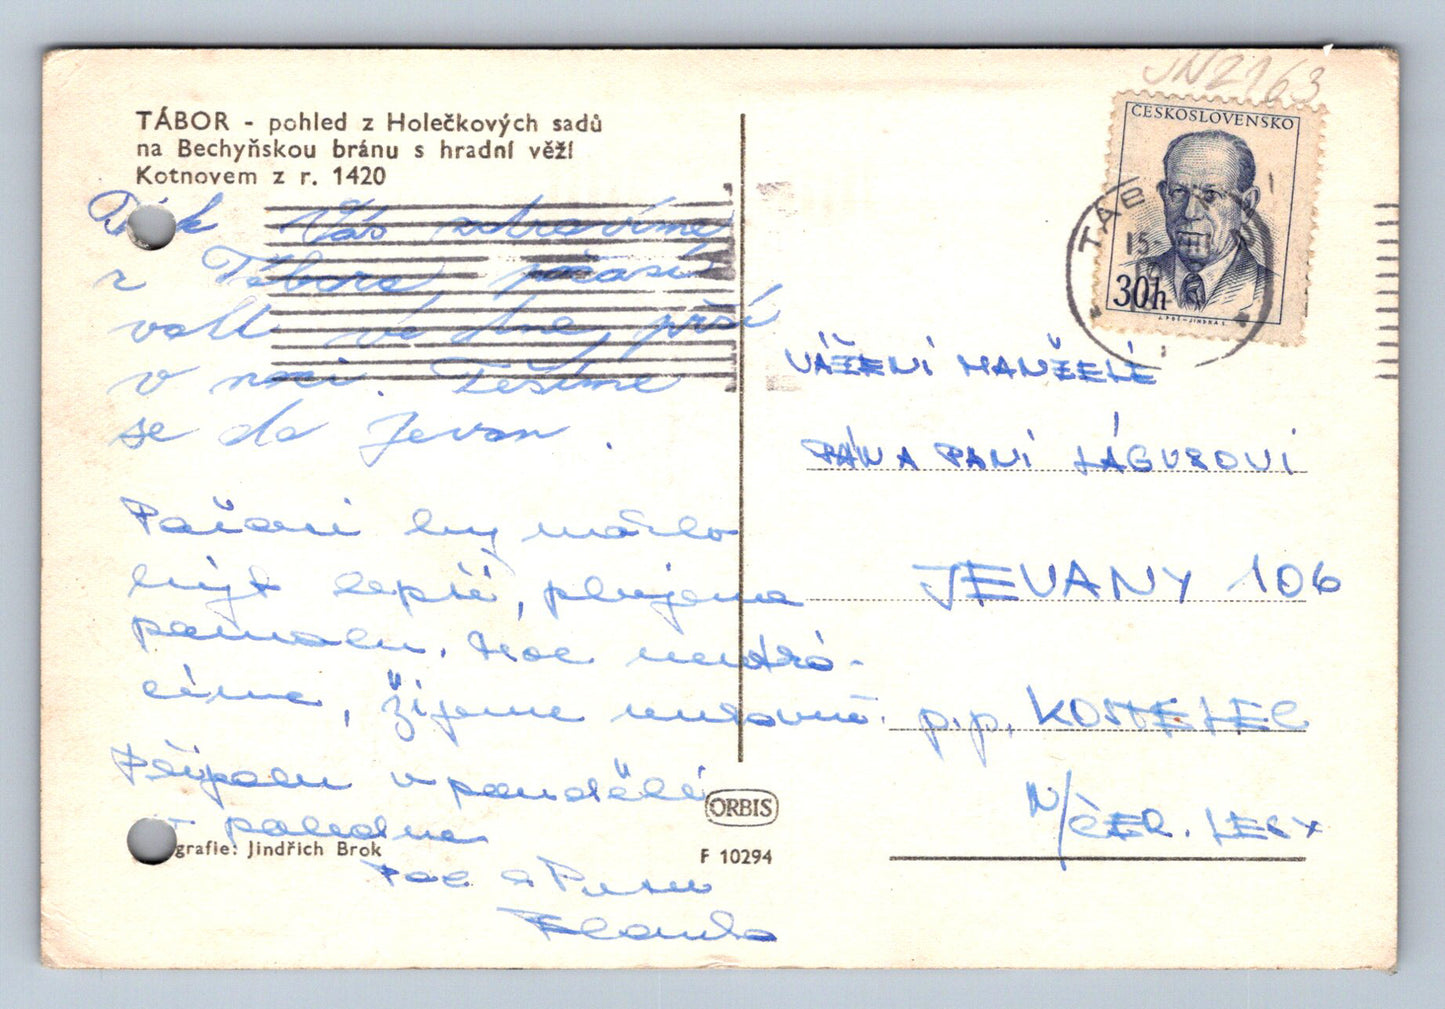 TÁBOR - pohled z Holečkových sadů
na Bechyňskou bránu s hradní věží
Kotnovem z r. 1420
Vás zdravíme
z Tábora, počasí
ve dne, prší
v noci. Těšíme
se do Jevan.
Počasí by mohlo
být lepší, plujeme
pomalu. Moc neutrá-
címe, žijeme
Přijedu v pondělí
v poledne
a
Blanka
grafie: Jindřich Brok
ORBIS
F 10294
JN2163
ČESKOSLOVENSKO
30h
TÁB
15.
VÁŽENÍ MANŽELÉ
PÁN A PANÍ LÁGUROVI
JEVANY 106
p.p. KOSTELEC
N/ČER. LESY